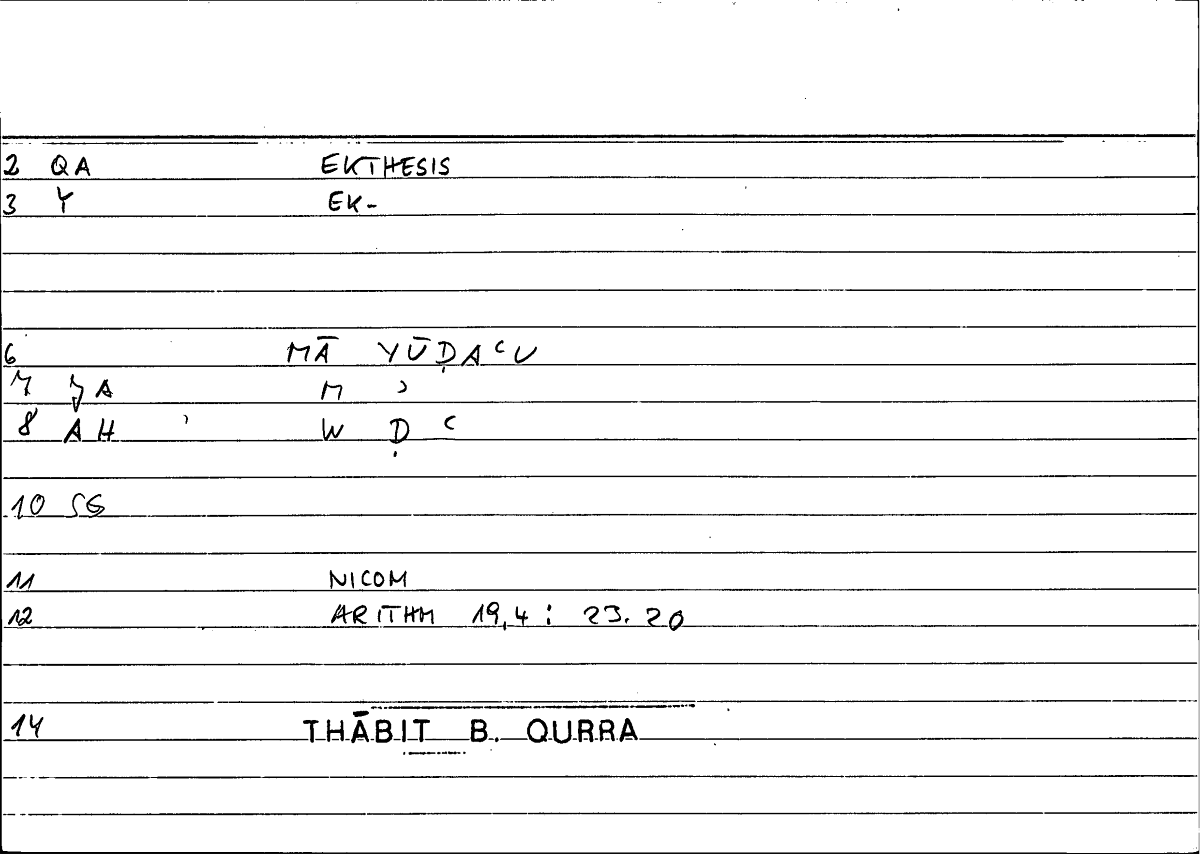 2 QA EKTHESIS
3 Y EK-
6 MĀ YŪḌAʿU
7 JA M ʾ
8 AH W Ḍ ʿ
10 SG
11 NICOM
12 ARITHM 19,4 : 23.20
14 THĀBIT B. QURRA